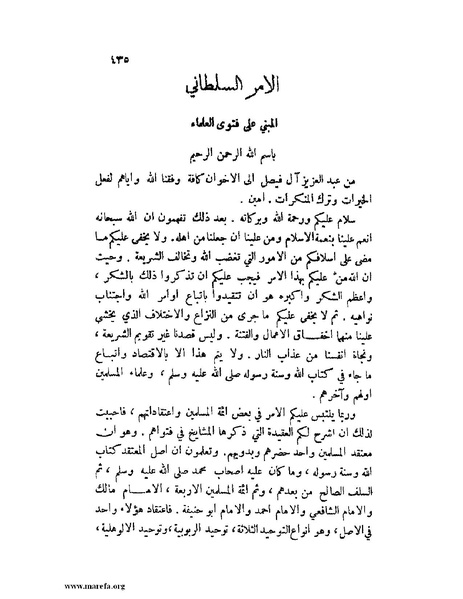 ٤٣٥
الامر السلطاني
المبني على فتوى العلماء
باسم الله الرحمن الرحيم
من عبد العزيز آل فيصل الى الاخوان كافة وفقنا الله واياهم لفعل
الخيرات وترك المنكرات . امين .
سلام عليكم ورحمة الله وبركاته . بعد ذلك تفهمون ان الله سبحانه
انعم علينا بنعمة الاسلام ومن علينا ان جعلنا من اهله . ولا يخفى عليكم ما
مضى على اسلافكم من الامور التي تغضب الله وتخالف الشريعة . وحيث
ان الله منّ عليكم بهذا الامر فيجب عليكم ان تذكروا ذلك بالشكر ،
واعظم الشكر واكبره هو ان تتقيدوا باتباع اوامر الله واجتناب
نواهيه . ثم لا يخفى عليكم ما جرى من النزاع والاختلاف الذي يخشى
علينا منهما اخفاق الاعمال والفتنة . وليس قصدنا غير تقويم الشريعة ،
ونجاة انفسنا من عذاب النار . ولا يتم هذا الا بالاقتصاد واتباع
ما جاء في كتاب الله وسنة رسوله صلى الله عليه وسلم ، وعلماء المسلمين
اولهم وآخرهم .
وربما يلتبس عليكم الامر في بعض ائمة المسلمين واعتقاداتهم ، فاحببت
لذلك ان اشرح لكم العقيدة التي ذكرها المشايخ في فتواهم . وهو ان
معتقد المسلمين واحد حضرهم وبدويهم . وتعلمون ان اصل المعتقد كتاب
الله وسنة رسوله ، وما كان عليه اصحاب محمد صلى الله عليه وسلم ، ثم
السلف الصالح من بعدهم ، وثم ائمة المسلمين الاربعة ، الامام مالك
والامام الشافعي والامام احمد والامام ابو حنيفة . فاعتقاد هؤلاء واحد
في الاصل ، وهو أنواع التوحيد الثلاثة ، توحيد الربوبية ، وتوحيد الالوهلية ،
www.marefa.org